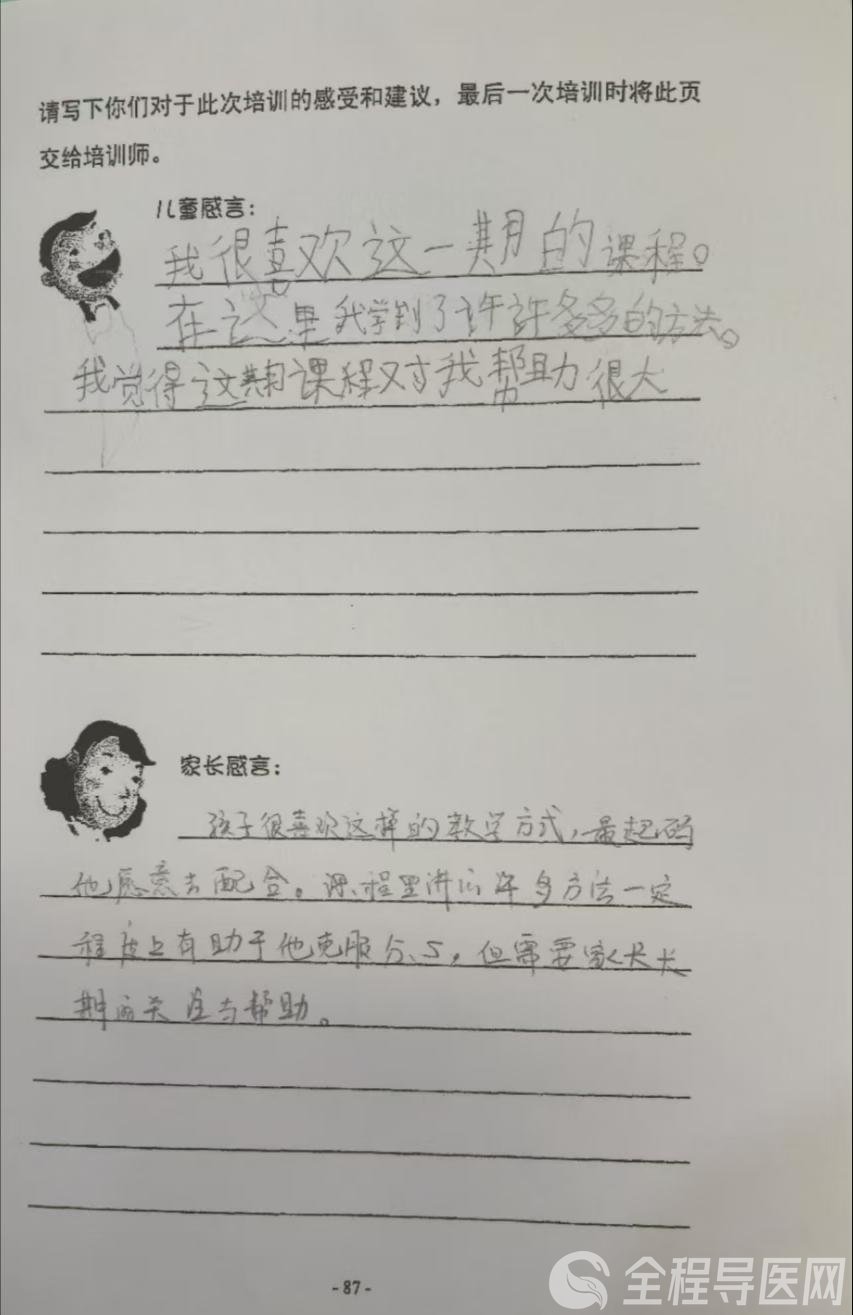 请写下你们对于此次培训的感受和建议，最后一次培训时将此页
交给培训师。
儿童感言：
我很喜欢这一期的课程。
在这里我学到了许许多多的方法。
我觉得这期课程对我帮助很大
家长感言：
孩子很喜欢这样的教学方式，最起码
他愿意去配合。课程里讲的许多方法一定
程度上有助于他克服分心，但需要家长长
期的关注与帮助。
- 87 -
全程导医网